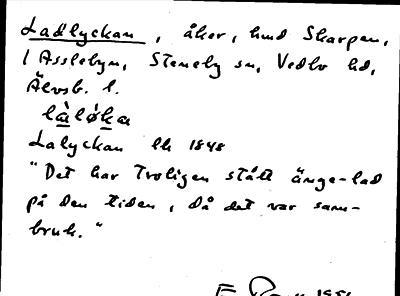 Ladlyckan, åker, hmd Skarpen,
1 Asslebyn, Steneby sn, Vedbo hd,
Älvsb. l.
Lalyckan lh 1848
"Det har troligen stått änge-lad
på den tiden, då det var sam-
bruk."